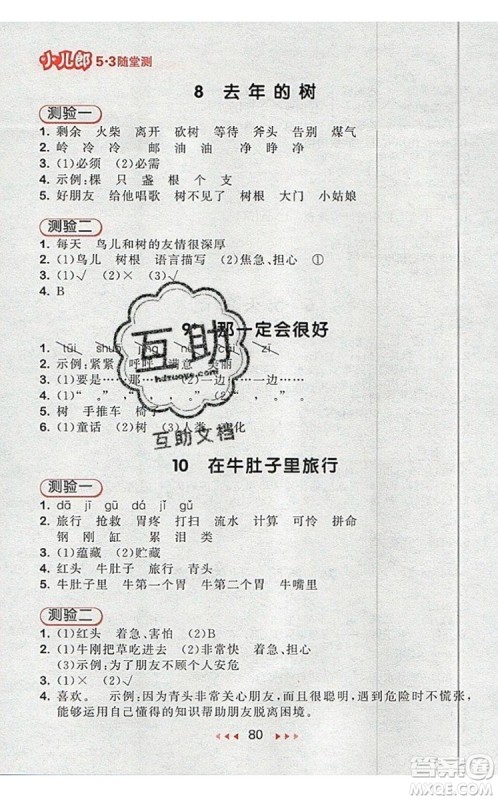 小儿郎 5·3随堂测
8 去年的树
测验一
1. 剩余 火柴 离开 砍树 等待 斧头 告别 煤气
2. 岭 冷 冷 邮 油 油 净 睁 净
3. (1)必须 (2)必需
4. 示例:棵 只 盏 根 个 支
5. 好朋友 给他唱歌 树不见了 树根 大门 小姑娘
测验二
1. 每天 鸟儿和树的友情很深厚
2. (1)鸟儿 树根 语言描写 (2)焦急、担心 ①
3. (1)√ (2)× (3)√
4. B
9* 那一定会很好
1. tūi shuō
2. 示例:紧紧 呼呼 满意 美丽
3. (1)要是……那 (2)一边……一边……
4. (1)“ 。” , “ 。”
5. 树 手推车 椅子
6. (1)童话 (2)√ (3)人类
互助
hdzuoye.com
互助文档
10 在牛肚子里旅行
测验一
1. dā jī gū dá jí gǔ
2. 旅行 抢救 胃疼 打扫 流水 计算 可怜 拼命
钢 刚 缸 累 泪 类
3. (1)蕴藏 (2)收藏
4. 红头 牛肚子 旅行 青头
5. 牛肚子里 牛第一个胃 牛第二个胃 牛嘴里
测验二
1. (1)红头 着急、害怕 (2)B
2. (1)牛刚把草吃进去 (2)非常快 着急、担心
(3)示例:为了朋友不顾个人安危
3. (1)× (2)√ (3)√
4. 喜欢。 示例:因为青头非常关心朋友,而且很聪明,遇到危险时不慌张,
能运用自己懂得的知识帮助朋友脱离困境。
80